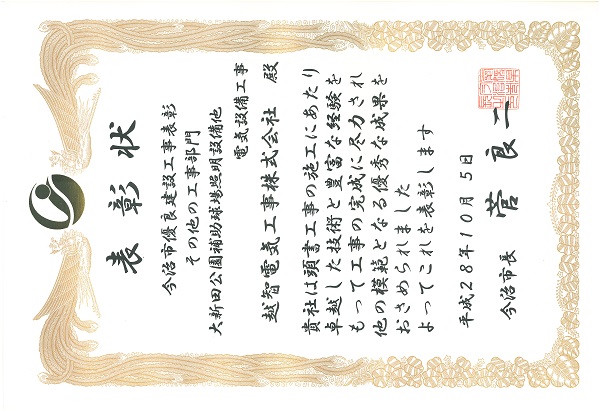 表彰状
今治市優良建設工事表彰
その他の工事部門
大新田公園補助球場照明設備他
電気設備工事
越智電気工事株式会社 殿
貴社は頭書工事の施工にあたり
卓越した技術と豊富な経験を
もって工事の完成に尽力され
他の模範となる優秀な成果を
おさめられました
よってこれを表彰します
平成28年10月5日
今治市長 菅良二